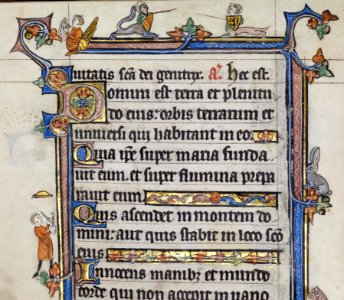 uitatis scā dei genitrix. A. Hec est
Domini est terra et plenitu
do eius: orbis terrarum et
uniuersi qui habitant in eo.
Quia ipe super maria funda
uit eum. et super flumina prepa
rauit eum.
Quis ascendet in montem do
mini: aut quis stabit in loco scō
eius
Innocens manibz et mundo
corde qui non accepit in uano